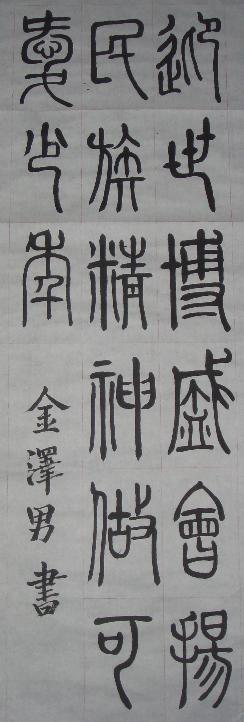 迎世博盛會揚
民族精神做可
愛少年
金澤男書